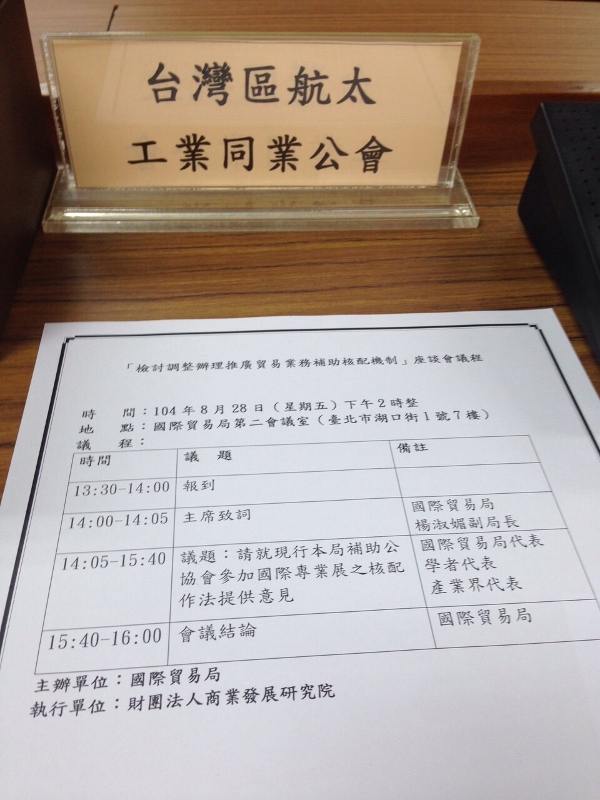 台灣區航太
工業同業公會
「檢討調整辦理推廣貿易業務補助核配機制」座談會議程
時 間：104 年 8 月 28 日（星期五）下午 2 時整
地 點：國際貿易局第二會議室（臺北市湖口街 1 號 7 樓）
議 程：
時間 議 題 備註
13:30-14:00 報到
14:00-14:05 主席致詞 國際貿易局
楊淑媚副局長
14:05-15:40 議題：請就現行本局補助公 國際貿易局代表
協會參加國際專業展之核配 學者代表
作法提供意見 產業界代表
15:40-16:00 會議結論 國際貿易局
主辦單位：國際貿易局
執行單位：財團法人商業發展研究院